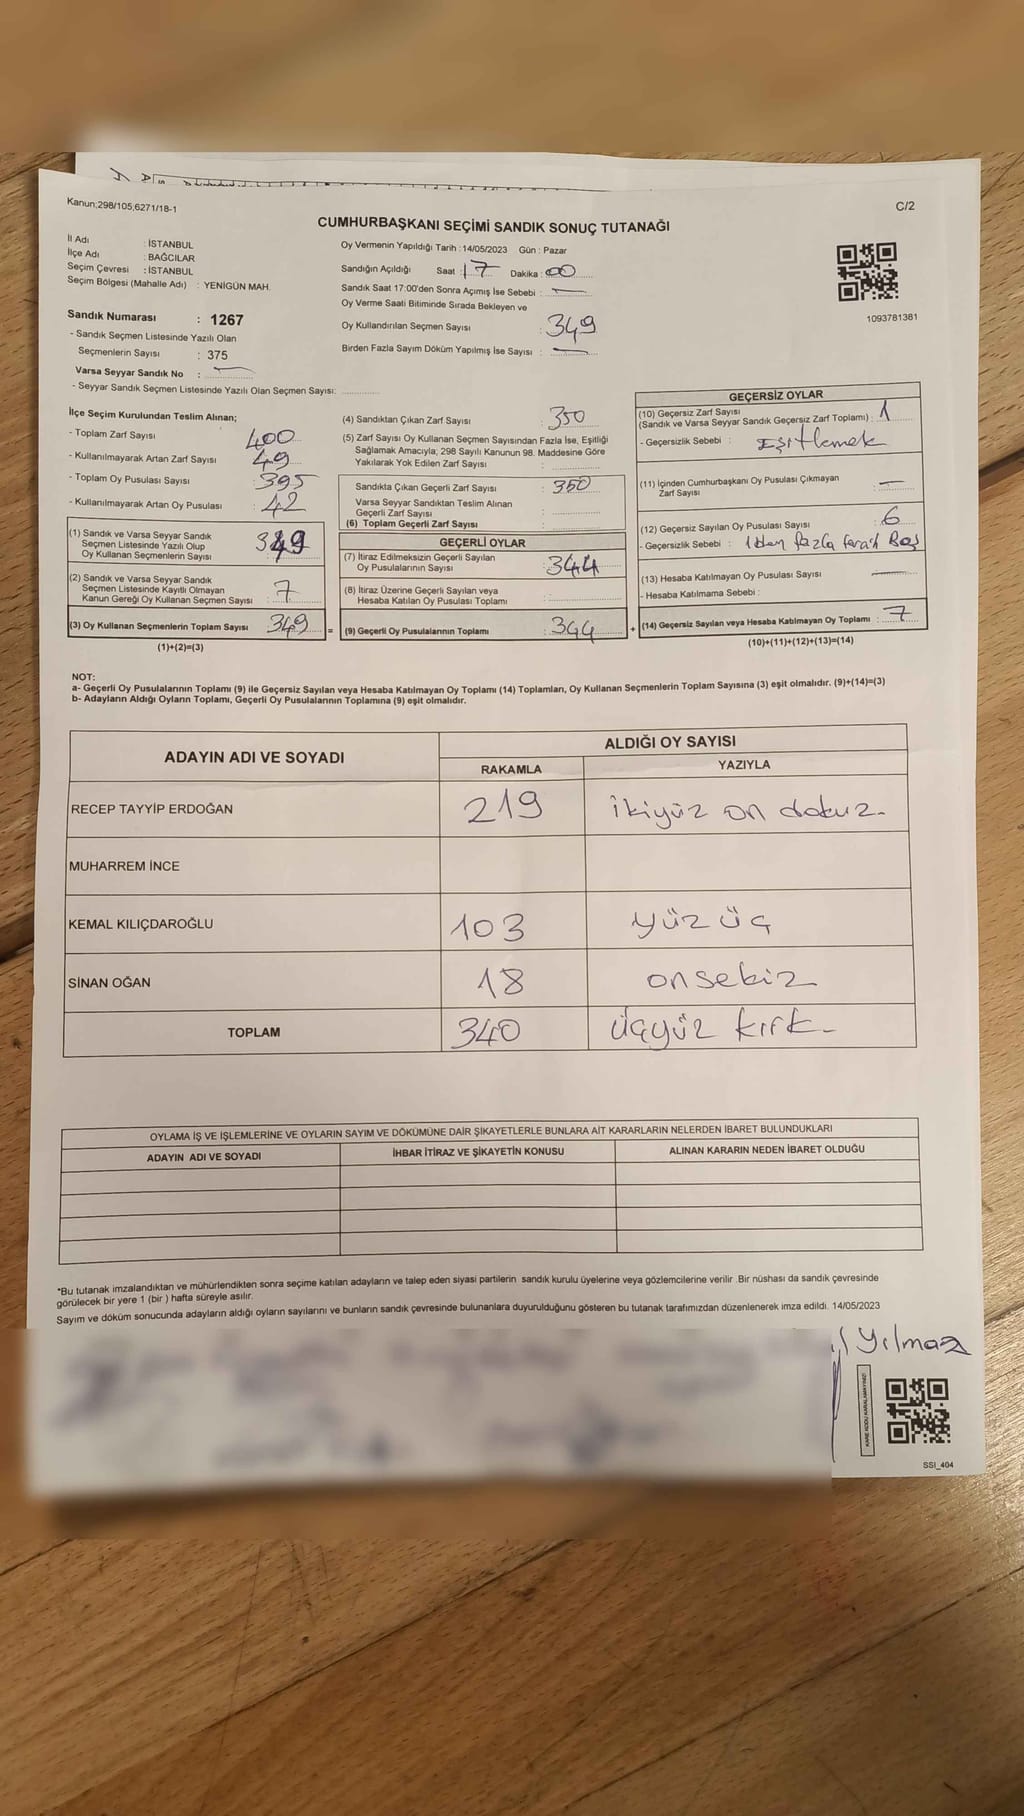 Kanun;298/105;6271/18-1
C/2
CUMHURBAŞKANI SEÇİMİ SANDIK SONUÇ TUTANAĞI
İl Adı : İSTANBUL
İlçe Adı : BAĞCILAR
Seçim Çevresi : İSTANBUL
Seçim Bölgesi (Mahalle Adı) : YENİGÜN MAH.
Sandık Numarası : 1267
- Sandık Seçmen Listesinde Yazılı Olan
Seçmenlerin Sayısı : 375
Varsa Seyyar Sandık No :
- Seyyar Sandık Seçmen Listesinde Yazılı Olan Seçmen Sayısı:
Oy Vermenin Yapıldığı Tarih : 14/05/2023 Gün : Pazar
Sandığın Açıldığı Saat : 17 Dakika : 00
Sandık Saat 17:00'den Sonra Açımış İse Sebebi : —
Oy Verme Saati Bitiminde Sırada Bekleyen ve
Oy Kullandırılan Seçmen Sayısı : 349
Birden Fazla Sayım Döküm Yapılmış İse Sayısı : —
1093781381
İlçe Seçim Kurulundan Teslim Alınan;
- Toplam Zarf Sayısı : 400
- Kullanılmayarak Artan Zarf Sayısı : 49
- Toplam Oy Pusulası Sayısı : 395
- Kullanılmayarak Artan Oy Pusulası : 42
(1) Sandık ve Varsa Seyyar Sandık
Seçmen Listesinde Yazılı Olup
Oy Kullanan Seçmenlerin Sayısı : 349
(2) Sandık ve Varsa Seyyar Sandık
Seçmen Listesinde Kayıtlı Olmayan
Kanun Gereği Oy Kullanan Seçmen Sayısı : 7
(3) Oy Kullanan Seçmenlerin Toplam Sayısı : 349 =
(1)+(2)=(3)
(4) Sandıktan Çıkan Zarf Sayısı : 350
(5) Zarf Sayısı Oy Kullanan Seçmen Sayısından Fazla İse, Eşitliği
Sağlamak Amacıyla; 298 Sayılı Kanunun 98. Maddesine Göre
Yakılarak Yok Edilen Zarf Sayısı :
Sandıkta Çıkan Geçerli Zarf Sayısı : 350
Varsa Seyyar Sandıktan Teslim Alınan
Geçerli Zarf Sayısı :
(6) Toplam Geçerli Zarf Sayısı :
GEÇERLİ OYLAR
(7) İtiraz Edilmeksizin Geçerli Sayılan
Oy Pusulalarının Sayısı : 344
(8) İtiraz Üzerine Geçerli Sayılan veya
Hesaba Katılan Oy Pusulası Toplamı :
(9) Geçerli Oy Pusulalarının Toplamı : 344 +
GEÇERSİZ OYLAR
(10) Geçersiz Zarf Sayısı
(Sandık ve Varsa Seyyar Sandık Geçersiz Zarf Toplamı) : 1
- Geçersizlik Sebebi : Eşitlemek
(11) İçinden Cumhurbaşkanı Oy Pusulası Çıkmayan
Zarf Sayısı : —
(12) Geçersiz Sayılan Oy Pusulası Sayısı : 6
- Geçersizlik Sebebi : 1den fazla
(13) Hesaba Katılmayan Oy Pusulası Sayısı : —
- Hesaba Katılmama Sebebi :
(14) Geçersiz Sayılan veya Hesaba Katılmayan Oy Toplamı : 7
(10)+(11)+(12)+(13)=(14)
NOT:
a- Geçerli Oy Pusulalarının Toplamı (9) ile Geçersiz Sayılan veya Hesaba Katılmayan Oy Toplamı (14) Toplamları, Oy Kullanan Seçmenlerin Toplam Sayısına (3) eşit olmalıdır. (9)+(14)=(3)
b- Adayların Aldığı Oyların Toplamı, Geçerli Oy Pusulalarının Toplamına (9) eşit olmalıdır.
ADAYIN ADI VE SOYADI
ALDIĞI OY SAYISI
RAKAMLA YAZIYLA
RECEP TAYYİP ERDOĞAN 219 ikiyüz on dokuz.
MUHARREM İNCE
KEMAL KILIÇDAROĞLU 103 yüz üç
SİNAN OĞAN 18 onsekiz
TOPLAM 340 üçyüz kırk
OYLAMA İŞ VE İŞLEMLERİNE VE OYLARIN SAYIM VE DÖKÜMÜNE DAİR ŞİKAYETLERLE BUNLARA AİT KARARLARIN NELERDEN İBARET BULUNDUKLARI
ADAYIN ADI VE SOYADI İHBAR İTİRAZ VE ŞİKAYETİN KONUSU ALINAN KARARIN NEDEN İBARET OLDUĞU
*Bu tutanak imzalandıktan ve mühürlendikten sonra seçime katılan adayların ve talep eden siyasi partilerin sandık kurulu üyelerine veya gözlemcilerine verilir .Bir nüshası da sandık çevresinde
görülecek bir yere 1 (bir ) hafta süreyle asılır.
Sayım ve döküm sonucunda adayların aldığı oyların sayılarını ve bunların sandık çevresinde bulunanlara duyurulduğunu gösteren bu tutanak tarafımızdan düzenlenerek imza edildi. 14/05/2023
Yılmaz
KARE KODU KARALAMAYINIZ!
SSI_404